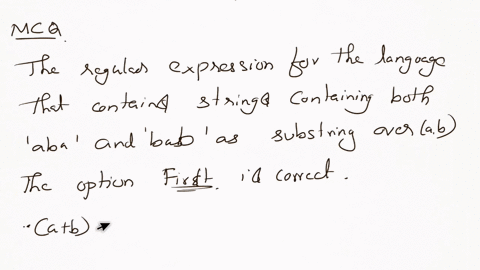 MCQ
The regular expression for the language
that contains strings containing both
'aba' and 'bab' as substring over (a,b)
The option First is correct.
(a+b)